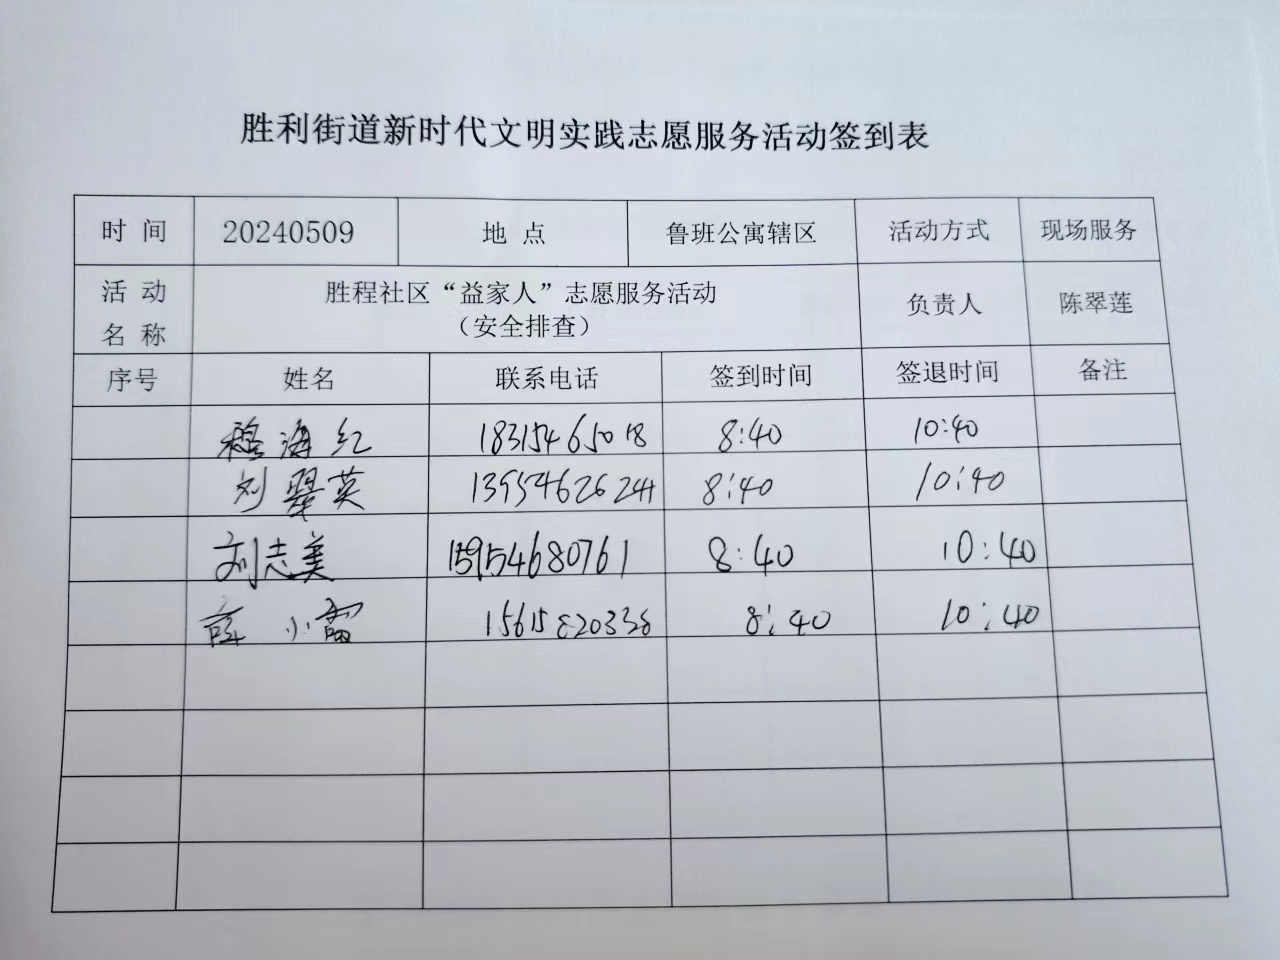 胜利街道新时代文明实践志愿服务活动签到表
时 间 20240509 地 点 鲁班公寓辖区 活动方式 现场服务
活 动 名 称 胜程社区“益家人”志愿服务活动 （安全排查） 负责人 陈翠莲
序号 姓名 联系电话 签到时间 签退时间 备注
穆海红 18315465018 8:40 10:40
刘翠英 8:40 10:40
刘志美 15954680761 8:40 10:40
薛小雷 15615820338 8:40 10:40